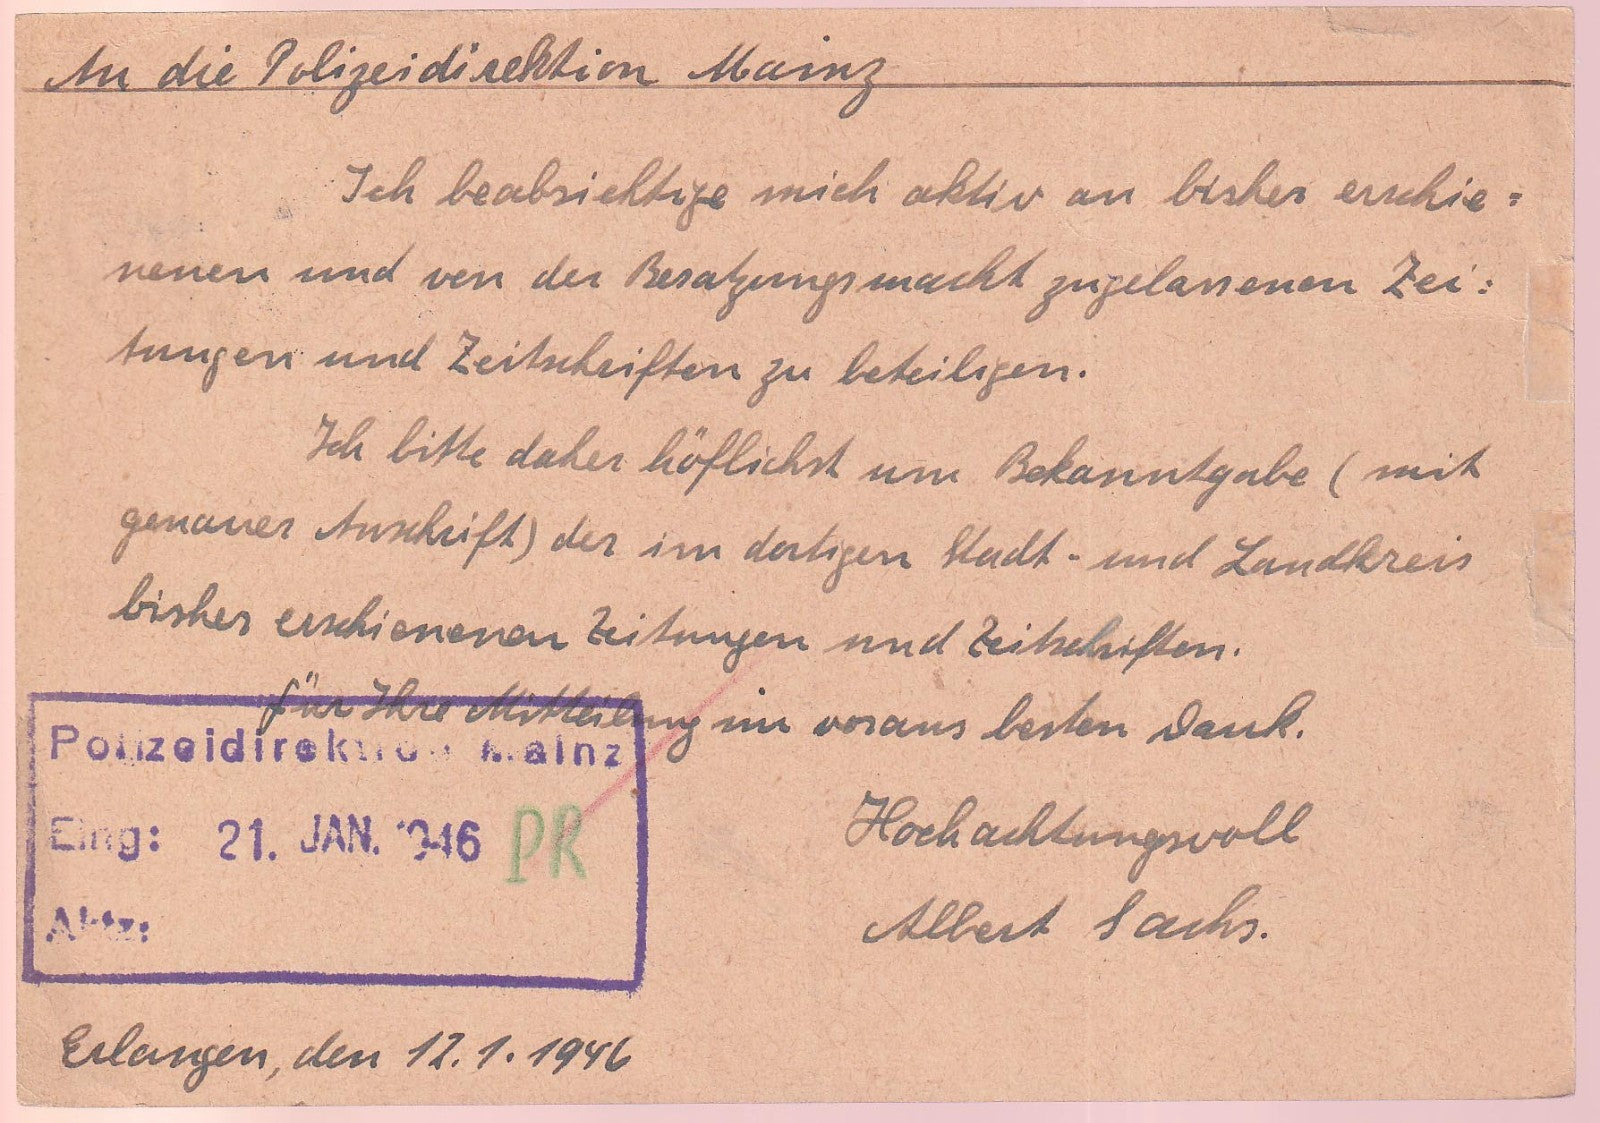 An die Polizeidirektion Mainz
Ich beabsichtige mich aktiv an bisher erschie=
nenen und von der Besatzungsmacht zugelassenen Zei=
tungen und Zeitschriften zu beteiligen.
Ich bitte daher höflichst um Bekanntgabe (mit
genauer Anschrift) der im dortigen Stadt- und Landkreis
bisher erschienenen Zeitungen und Zeitschriften.
für Ihre Mitteilung im voraus besten Dank.
Polizeidirektion Mainz
Eing: 21. JAN. 1946 PR
Aktz:
Hochachtungsvoll
Albert Sachs.
Erlangen, den 12.1.1946